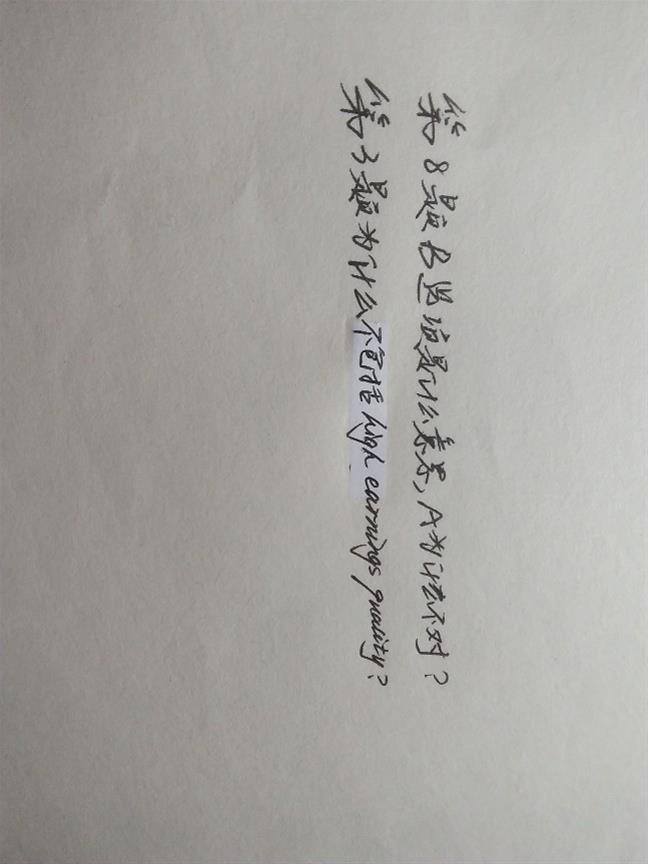 第8题B选项是什么意思，A为什么不对？
第3题为什么不包括high earnings quality？